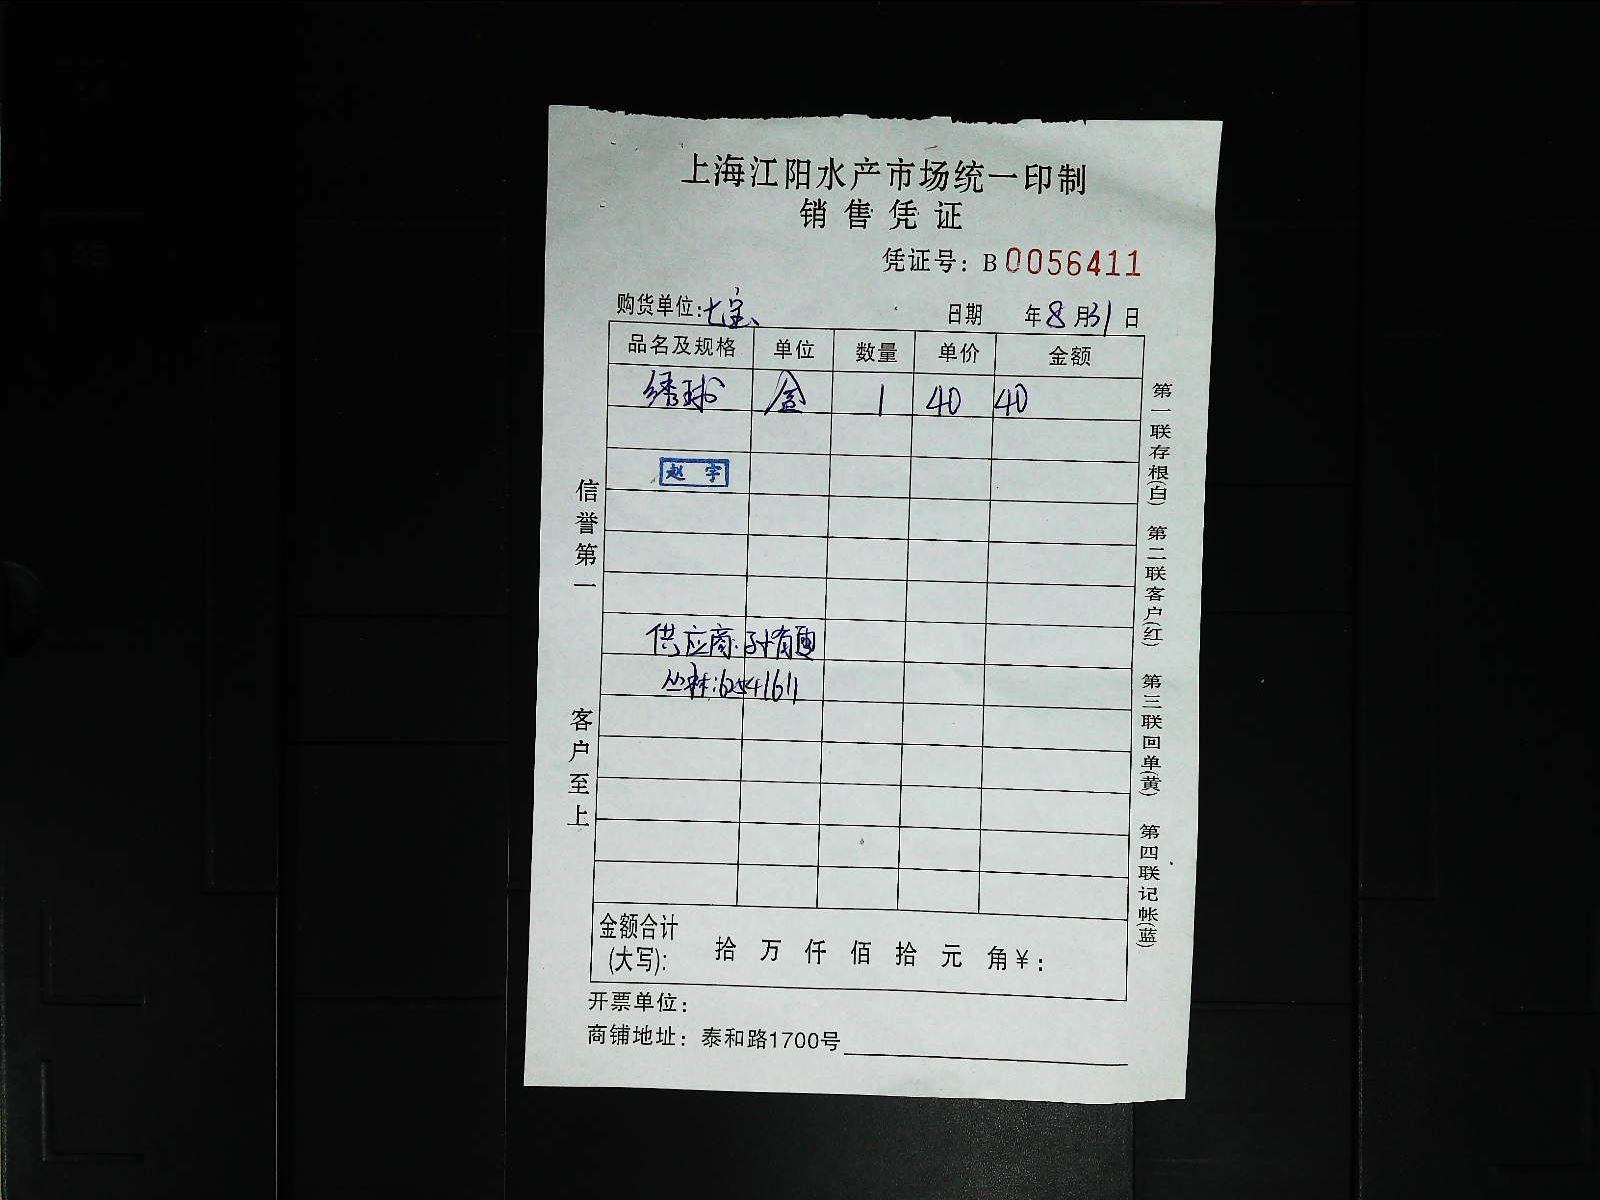 上海江阳水产市场统一印制
销售凭证
凭证号：B0056411
购货单位：七宝 日期 年8月31日
品名及规格 单位 数量 单价 金额
绣球 盒 1 40 40
赵宇
供应商：孙有
丛林：6541611
金额合计(大写)： 拾 万 仟 佰 拾 元 角￥：
开票单位：
商铺地址：泰和路1700号
信誉第一 客户至上
第一联存根(白) 第二联客户(红) 第三联回单(黄) 第四联记帐(蓝)